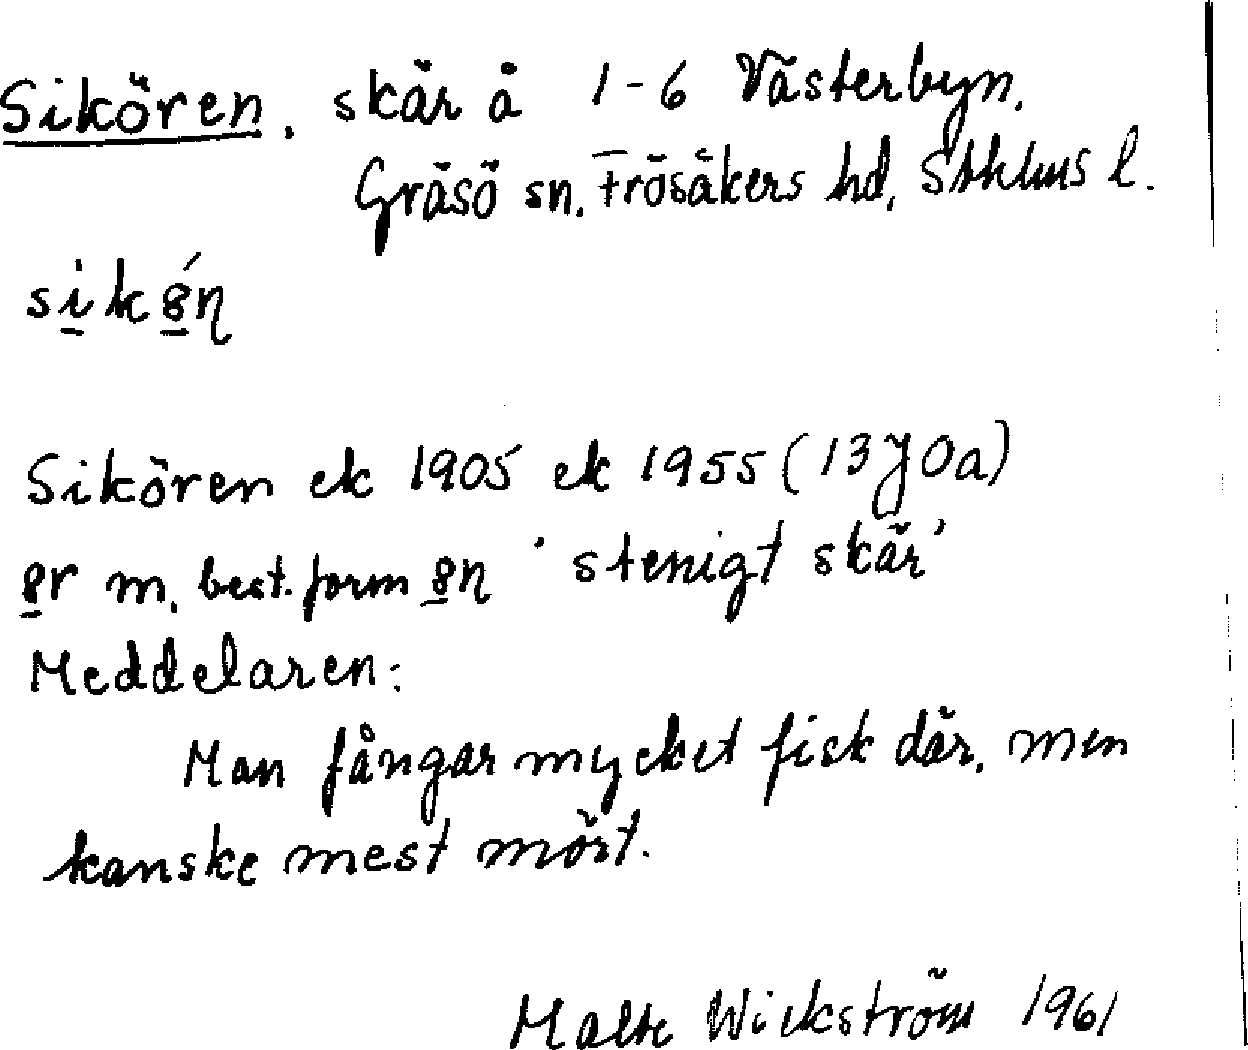 Sikören, skär å 1-6 Västerbyn.
Gräsö sn, Frösåkers hd, Sthlms l.
Sikören ek 1905 ek 1955 (13J0a)
m, best. form 'stenigt skär'
Meddelaren:
Man fångar mycket fisk där, men
kanske mest mört.
Malte Wickström 1961